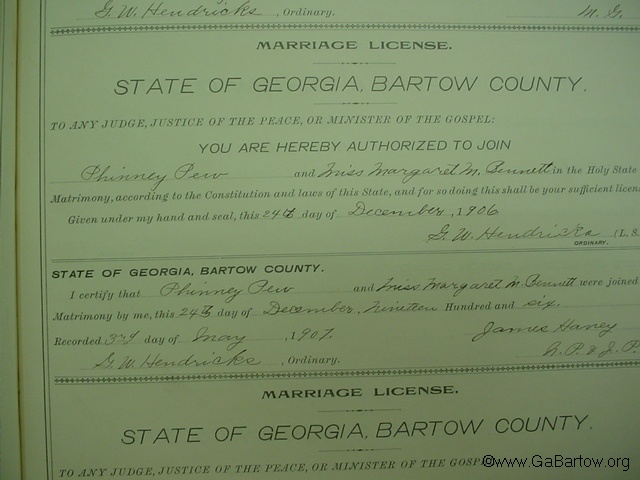 G. W. Hendricks, Ordinary. M. G.
MARRIAGE LICENSE.
STATE OF GEORGIA, BARTOW COUNTY.
TO ANY JUDGE, JUSTICE OF THE PEACE, OR MINISTER OF THE GOSPEL:
YOU ARE HEREBY AUTHORIZED TO JOIN
Phinney Pew and Miss Margaret M. Bennett in the Holy State
Matrimony, according to the Constitution and laws of this State, and for so doing this shall be your sufficient licen
Given under my hand and seal, this 24th day of December, 1906
G. W. Hendricks (L. S.
ORDINARY.
STATE OF GEORGIA, BARTOW COUNTY.
I certify that Phinney Pew and Miss Margaret M. Bennett were joined
Matrimony by me, this 24th day of December, Nineteen Hundred and six.
Recorded 3rd day of May, 1907. James Haney
G. W. Hendricks, Ordinary. N. P. & J. P.
MARRIAGE LICENSE.
STATE OF GEORGIA, BARTOW COUNTY.
TO ANY JUDGE, JUSTICE OF THE PEACE, OR MINISTER OF THE GOSP
©www.GaBartow.org